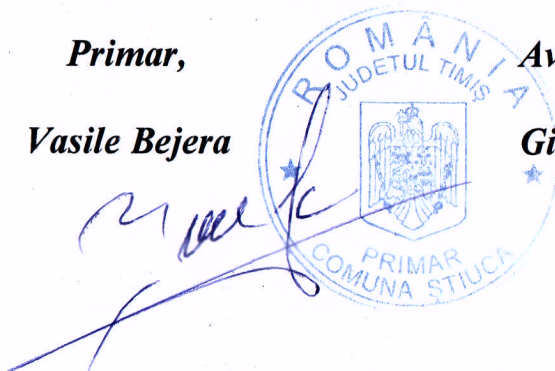 Primar,
Av
Vasile Bejera
Gi
ROMÂNIA
JUDEȚUL TIMIȘ
PRIMAR
COMUNA ȘTIUCA